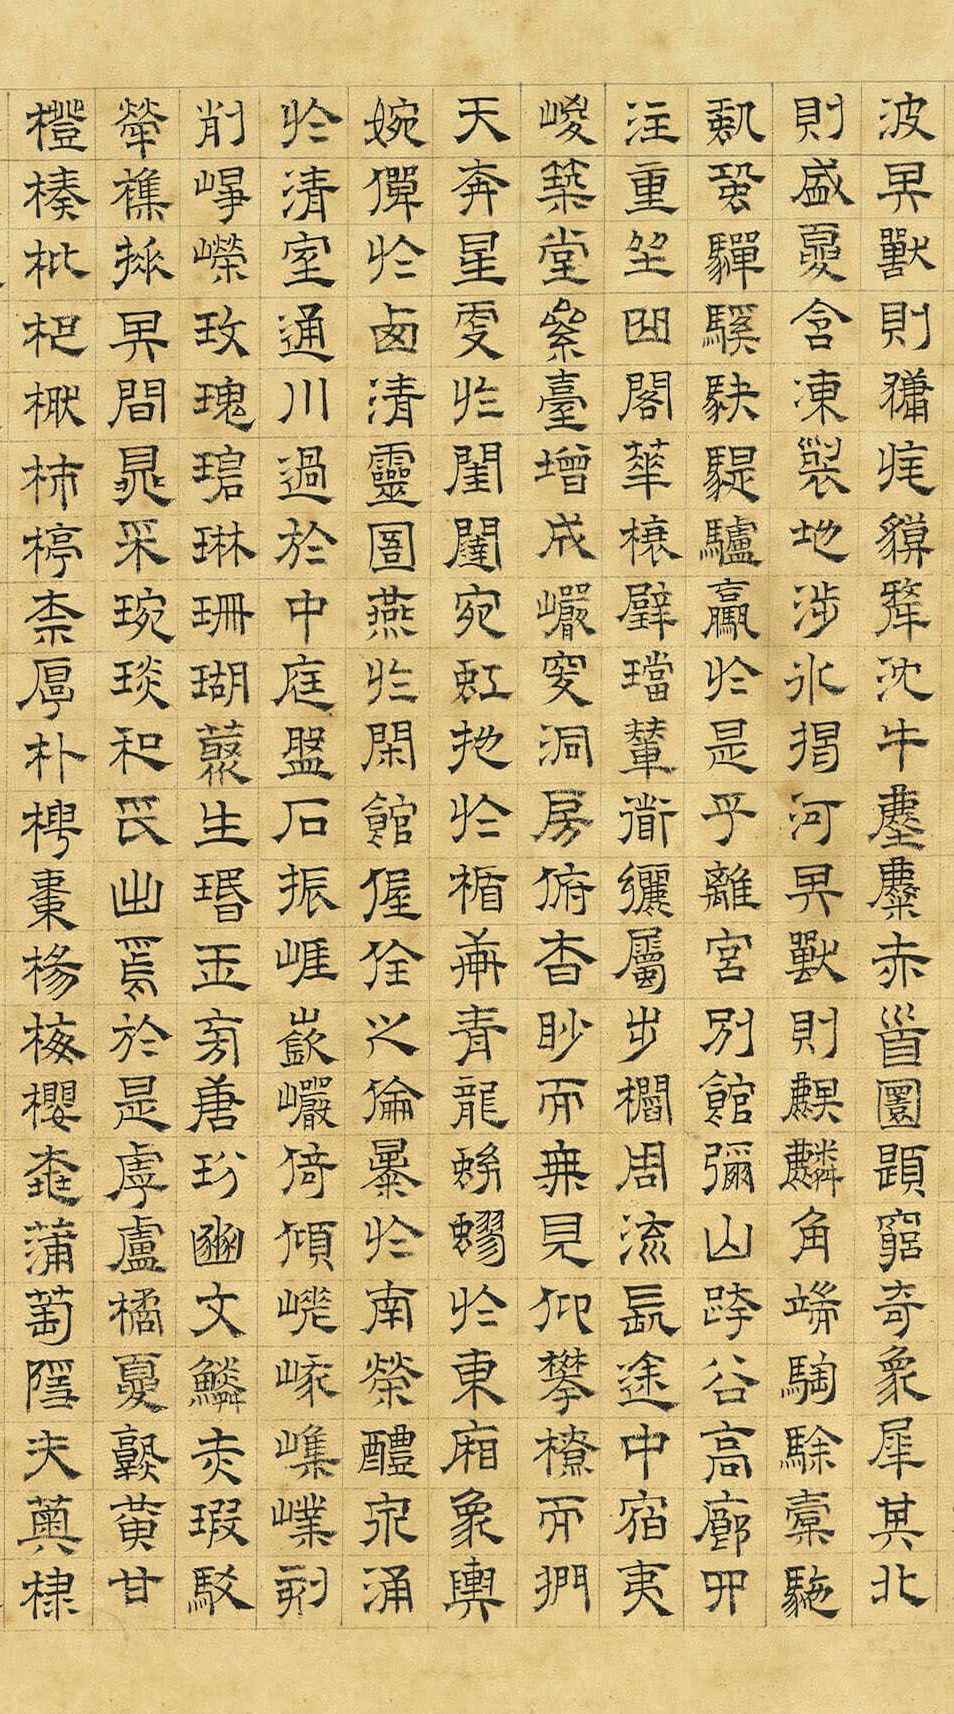 波其獸則㺎旄貘犛沈牛麈麋赤首圜題窮奇象犀其北
則盛夏含凍裂地涉冰揭河其獸則麒麟角端騊駼橐駞
蛩蛩驒騱駃騠驢驘於是乎離宮別館彌山跨谷高廊四
注重坐曲閣華榱璧璫輦道纚屬步櫩周流長途中宿夷
嵕築堂絫臺增成巖窔洞房俯杳眇而無見仰攀橑而捫
天奔星更於閨闥宛虹扡於楯軒青龍蚴蟉於東廂象輿
婉僤於西清靈圄燕於閒館偓佺之倫暴於南榮醴泉涌
於清室通川過於中庭盤石振崖嶔巖倚傾嵯峨㠍嶫刻
削崢嶸玫瑰碧琳珊瑚叢生瑉玉旁唐玢豳文鱗赤瑕駁
犖雜插其間晁采琬琰和氏出焉於是虖盧橘夏孰黃甘
橙楱枇杷橪柿楟柰厚朴梬棗楊梅櫻桃蒲萄隱夫薁棣